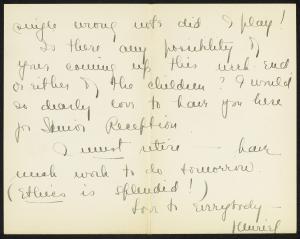 single wrong note did I play!
Is there any possibility of
your coming up this week-end
or either of the children? I would
so dearly love to have you here
for Senior Reception.
I must retire — have
much work to do tomorrow.
(Ethics is splendid!)
Love to everybody —
Muriel